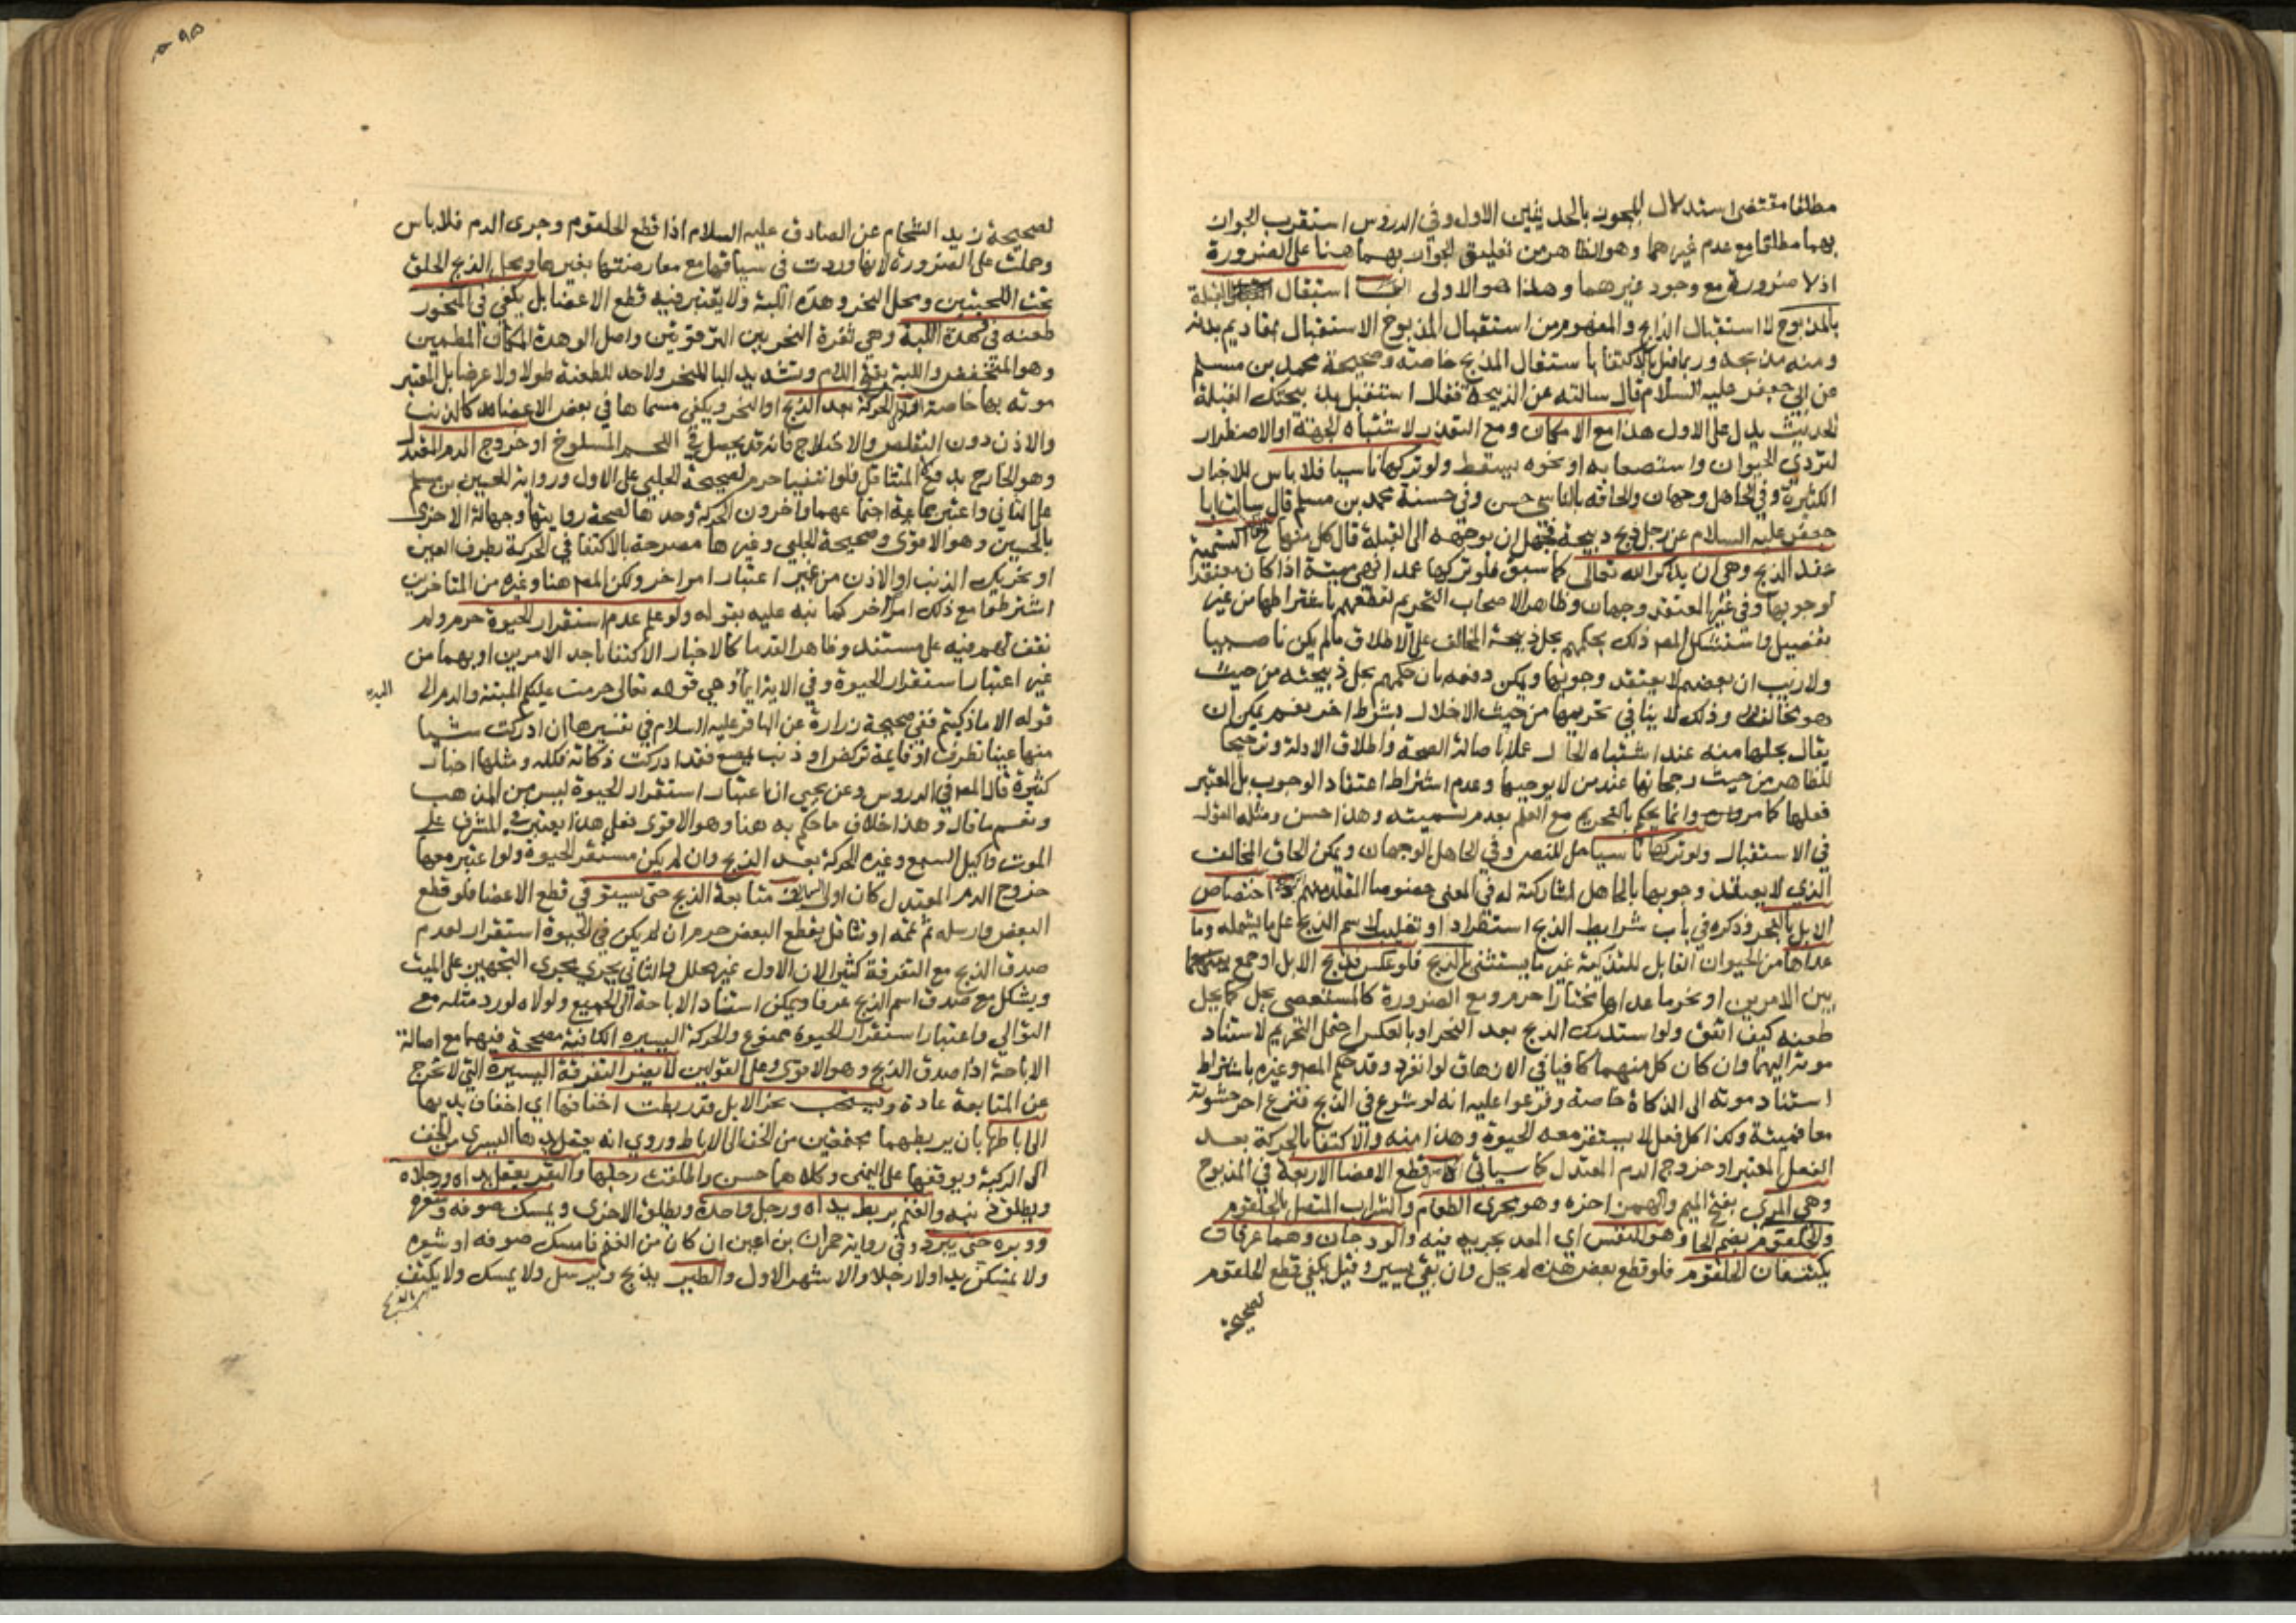 مطلقا مقتضى استدلال المجوز بالحديثين الاول وفي الدروس استقرب الجواز
بهما مطلقا مع عدم غيرهما وهو الظاهر من تعليق الجواز بهما هنا على الضرورة
اذ لا ضرورة مع وجود غيرهما وهذا هو الاولى استقبال القبلة
بالمذبوح لا استقبال الذابح والمفهوم من استقبال المذبوح الاستقبال بمقاديم بدنه
ومنه مذبحه وربما قيل بالاكتفا باستقبال المذبح خاصة وصحيحة محمد بن مسلم
عن ابي جعفر عليه السلام قال سالته عن الذبيحة فقال استقبل بذبيحتك القبلة
الحديث يدل على الاول هذا مع الامكان ومع التعذر لاشتباه الجهة او الاضطرار
لتردي الحيوان واستعصائه او نحوه يسقط ولو تركها ناسيا فلا باس للاخبار
الكثيرة وفي الجاهل وجهان والحاقه بالناسي حسن وفي حسنة محمد بن مسلم قال سالت ابا
جعفر عليه السلام عن رجل ذبح ذبيحة فجهل ان يوجهه الى القبلة قال كل منها التسمية
عند الذبح وهي ان يذكر الله تعالى كما سبق فلو تركها عمدا فهي ميتة اذا كان معتقدا
لوجوبها وفي غير المعتقد وجهان وظاهر الاصحاب التحريم لقطعهم باشتراطها من غير
تفصيل واستشكل المص ذلك بحكمهم بحل ذبيحة المخالف على الاطلاق مالم يكن ناصبيا
ولا ريب ان بعضهم لا يعتقد وجوبها ويمكن دفعه بان حكمهم بحل ذبيحته من حيث
هو مخالف وذلك لا ينافي تحريمها من حيث الاخلال بشرط اخر نعم يمكن ان
يقال بحلها منه عند اشتباه الحال عملا باصالة الصحة واطلاق الادلة وترجيحا
للظاهر من حيث رجحانها عند من لا يوجبها وعدم اشتراط اعتقاد الوجوب بل المعتبر
فعلها كما مر وانما يحكم بالتحريم مع العلم بعدم تسميته وهذا حسن ومثله القول
في الاستقبال ولو تركها ناسيا حل للنص وفي الجاهل الوجهان ويمكن الحاق المخالف
الذي لا يعتقد وجوبها بالجاهل لمشاركته له في المعنى خصوصا المقلد منهم اختصاص
الابل بالنحر وذكره في باب شرايط الذبح استطراد او تغليب لاسم الذبح على ما يشمله وما
عداها من الحيوان القابل للتذكية غير ما يستثنى بالذبح فلو عكس فذبح الابل او جمع
بين الامرين او نحر ما عداها مختارا حرم ومع الضرورة كالمستعصي يحل كما يحل
طعنه كيف اتفق ولو استدرك الذبح بعد النحر او بالعكس احتمل التحريم لاستناد
موته اليهما وان كان كل منهما كافيا في الازهاق لو انفرد وقد حكم المص وغيره باشتراط
استناد موته الى الذكاة خاصة وفرعوا عليه انه لو شرع في الذبح فنزع اخر حشوته
معا فميتة وكذا كل فعل لا يستقر معه الحيوة وهذا منه والاكتفا بالحركة بعد
الفعل المعتبر او خروج الدم المعتدل كما سياتي قطع الاعضا الاربعة في المذبوح
وهي المري بفتح الميم والهمز اخره وهو مجرى الطعام والشراب المتصل بالحلقوم
والحلقوم بضم الحا وهو النفس اي المعد لجريه فيه والودجان وهما عرقان
يكتنفان الحلقوم فلو قطع بعض هذه لم يحل وان بقي يسير وقيل يكفي قطع الحلقوم
لصحيحة
٥٩٥
لصحيحة زيد الشحام عن الصادق عليه السلام اذا قطع الحلقوم وجرى الدم فلا باس
وحملت على الضرورة لانها وردت في سياقها مع معارضتها بغيرها ومحل الذبح الحلق
تحت اللحيتين ومحل النحر وهدة اللبة ولا يعتبر فيه قطع الاعضا بل يكفي في المنحور
طعنه في وهدة اللبة وهي ثغرة النحر بين الترقوتين واصل الوهدة المكان المطمئن
وهو المنخفض واللبة بفتح اللام وتشديد البا المنحر ولا حد للطعنة طولا ولا عرضا بل المعتبر
موته بها خاصة الحركة بعد الذبح او النحر ويكفي مسماها في بعض الاعضا كالذنب
والاذن دون التقلص والاختلاج فانه قد يحصل في اللحم المسلوخ او خروج الدم المعتدل
وهو الخارج بدفع لا المتثاقل فلو انتفيا حرم لصحيحة الحلبي على الاول ورواية الحسين بن مسلم
على الثاني واعتبر جماعة اجتماعهما واخرون الحركة وحدها لصحة روايتها وجهالة الاخرى
بالحسين وهو الاقوى وصحيحة الحلبي وغيرها مصرحة بالاكتفا في الحركة بطرف العين
او تحريك الذنب او الاذن من غير اعتبار امر اخر ولكن المص هنا وغيره من المتاخرين
اشترطوا مع ذلك امرا اخر كما نبه عليه بقوله ولو علم عدم استقرار الحيوة حرم ولم
نقف لهم فيه على مستند وظاهر القدما كالاخبار الاكتفا باحد الامرين او بهما من
غير اعتبار استقرار الحيوة وفي الاية ايماء وهي قوله تعالى حرمت عليكم الميتة والدم الى
قوله الا ما ذكيتم ففي صحيحة زرارة عن الباقر عليه السلام في تفسيرها ان ادركت شيا
منها عينا تطرف او قايمة تركض او ذنب يمصع فقد ادركت ذكاته فكله ومثلها اخبار
كثيرة قال المص في الدروس وعن يحيى ان اعتبار استقرار الحيوة ليس من المذهب
ونعم ما قال وهذا خلاف ما حكم به هنا وهو الاقوى فعلى هذا يعتبر في المشرف على
الموت واكيل السبع وغيره الحركة بعد الذبح وان لم يكن مستقر الحيوة ولو اعتبر معها
خروج الدم المعتدل كان اولى متابعة الذبح حتى يستوفي قطع الاعضا فلو قطع
البعض وارسله ثم تممه او تثاقل بقطع البعض حرم ان لم يكن في الحيوة استقرار لعدم
صدق الذبح مع التفرقة كثيرا لان الاول غير محلل والثاني يجري مجرى التجهيز على الميت
ويشكل مع صدق اسم الذبح عرفا ويمكن استناد الاباحة الى الجميع ولولاه لورد مثله مع
التوالي واعتبار استقرار الحيوة ممنوع والحركة اليسيرة الكافية مصححة فيهما مع اصالة
الاباحة اذا صدق الذبح وهو الاقوى وعلى القولين لا يضر التفرقة اليسيرة التي لا تخرج
عن المتابعة عادة ويستحب نحر الابل قد ربطت اخفافها اي اخفاف يديها
الى اباطها بان يربطهما مجتمعتين من الخف الى الاباط وروي انه يعقل يدها اليسرى من الخف
الى الركبة ويوقفها على اليمنى وكلاهما حسن واطلقت رجلها والبقر يعقل يداه ورجلاه
ويطلق ذنبه والغنم يربط يداه ورجل واحدة ويطلق الاخرى ويمسك صوفه وشعره
ووبره حتى يبرد وفي رواية حمران بن اعين ان كان من الغنم فامسك صوفه او شعره
ولا تمسكن يدا ولا رجلا والاشهر الاول والطير يذبح ويرسل ولا يمسك ولا يكتف